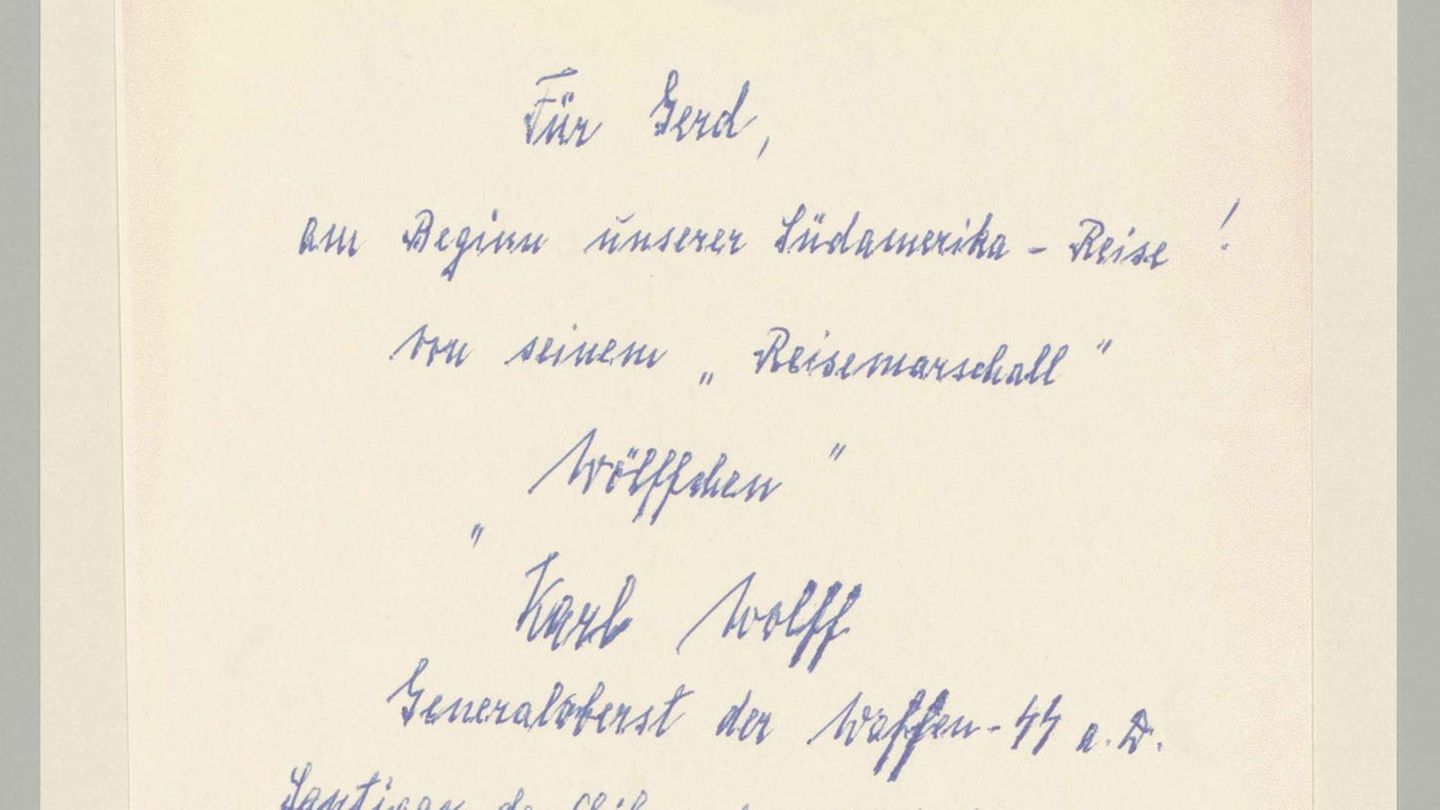 Für Gerd,
am Beginn unserer Südamerika - Reise !
von seinem „ Reisemarschall "
" Wölffchen "
Karl Wolff
Generaloberst der Waffen-SS a. D.
Santiago de Chile